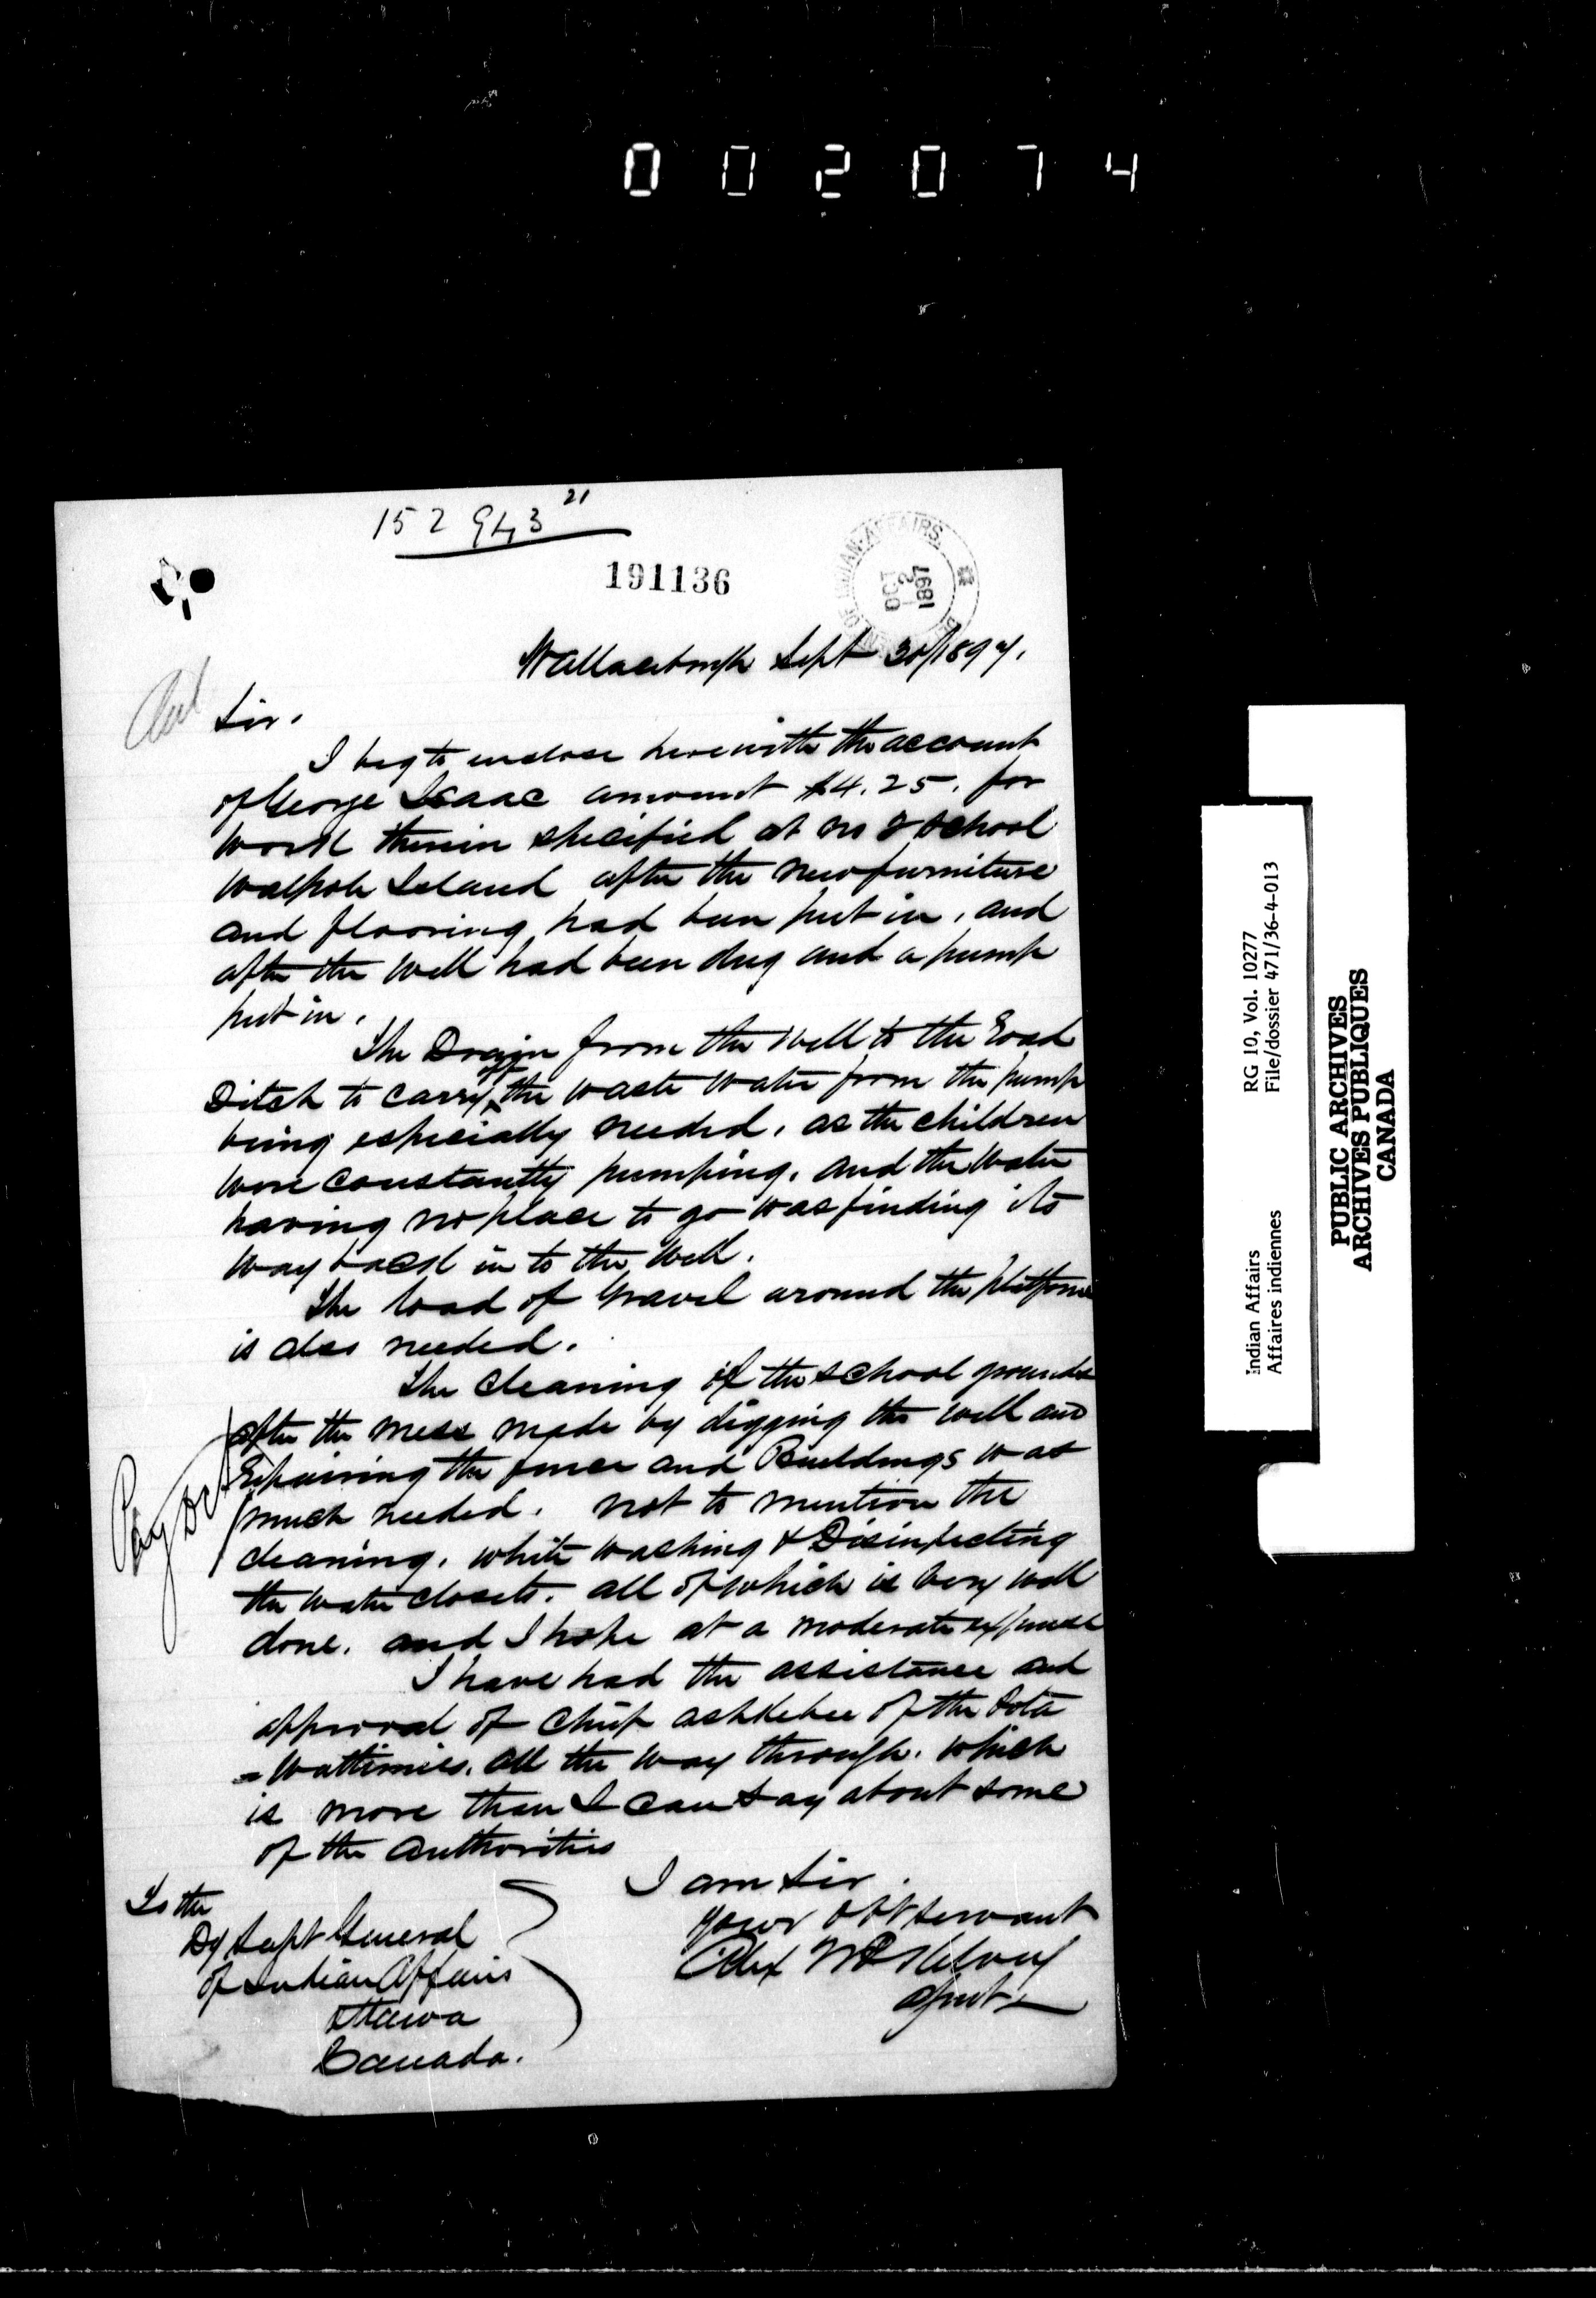 002074
152943 21
191136
DEPT. OF INDIAN AFFAIRS
OCT 2 1897
Wallaceburgh Sept 30/1897.
Sir.
I beg to enclose herewith the account
of George Isaac amount $4.25. for
work therein specified at no 2 School
Walpole Island after the new furniture
and flooring had been put in, and
after the well had been dug and a pump
put in.
The Drain from the Well to the Road
Ditch to carry off the waste water from the pump
being especially needed, as the children
were constantly pumping, and the water
having no place to go was finding its
way back in to the well.
The load of Gravel around the platform
is also needed.
The cleaning of the school grounds
after the mess made by digging the well and
Repairing the fence and Buildings was
much needed. not to mention the
cleaning, white washing & Disinfecting
the water closets. all of which is very well
done. and I hope at a moderate expense
I have had the assistance and
approval of Chief Ashkebee of the Pota
=wattimies. all the way through. which
is more than I can say about some
of the Authorities
I am Sir.
your obt servant
Alex McKelvey
Agent
To the
Dy Supt General
of Indian Affairs
Ottawa
Canada.
Pay
Indian Affairs RG 10, Vol. 10277
Affaires indiennes File/dossier 471/36-4-013
PUBLIC ARCHIVES
ARCHIVES PUBLIQUES
CANADA